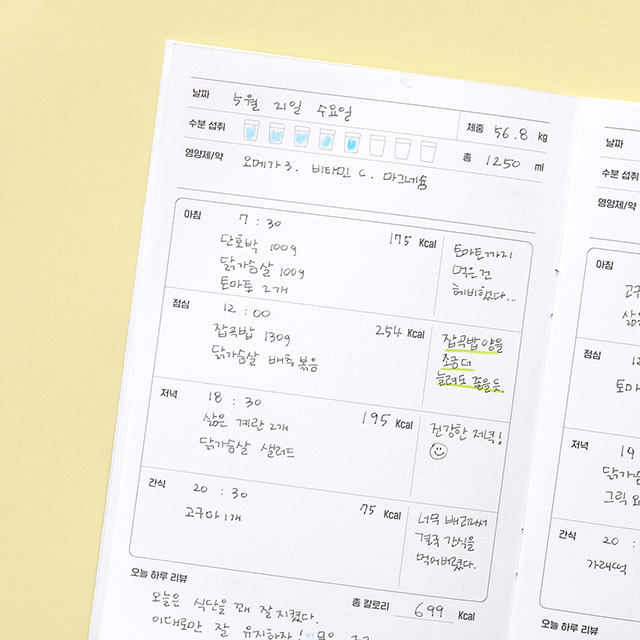 날짜 5월 21일 수요일 체중 56.8 kg
수분 섭취 총 1250 ml
영양제/약 오메가3. 비타민 C. 마그네슘
아침 7 : 30 175 Kcal
단호박 100g
닭가슴살 100g
토마토 2개
토마토까지
먹은건
헤비했다...
점심 12 : 00 254 Kcal
잡곡밥 130g
닭가슴살 배추볶음
잡곡밥 양을
조금 더
늘려도 좋을듯.
저녁 18 : 30 195 Kcal
삶은 계란 2개
닭가슴살 샐러드
건강한 저녁!
간식 20 : 30 75 Kcal
고구마 1개
너무 배고파서
결국 간식을
먹어버렸다.
오늘 하루 리뷰 총 칼로리 699 Kcal
오늘은 식단을 꽤 잘 지켰다.
이대로만 잘 유지하자!
날짜
수분 섭취
영양제/약
아침
고구
삶은
점심 12
토마
저녁 19
닭가슴
그릭 요
간식 20 :
가래떡